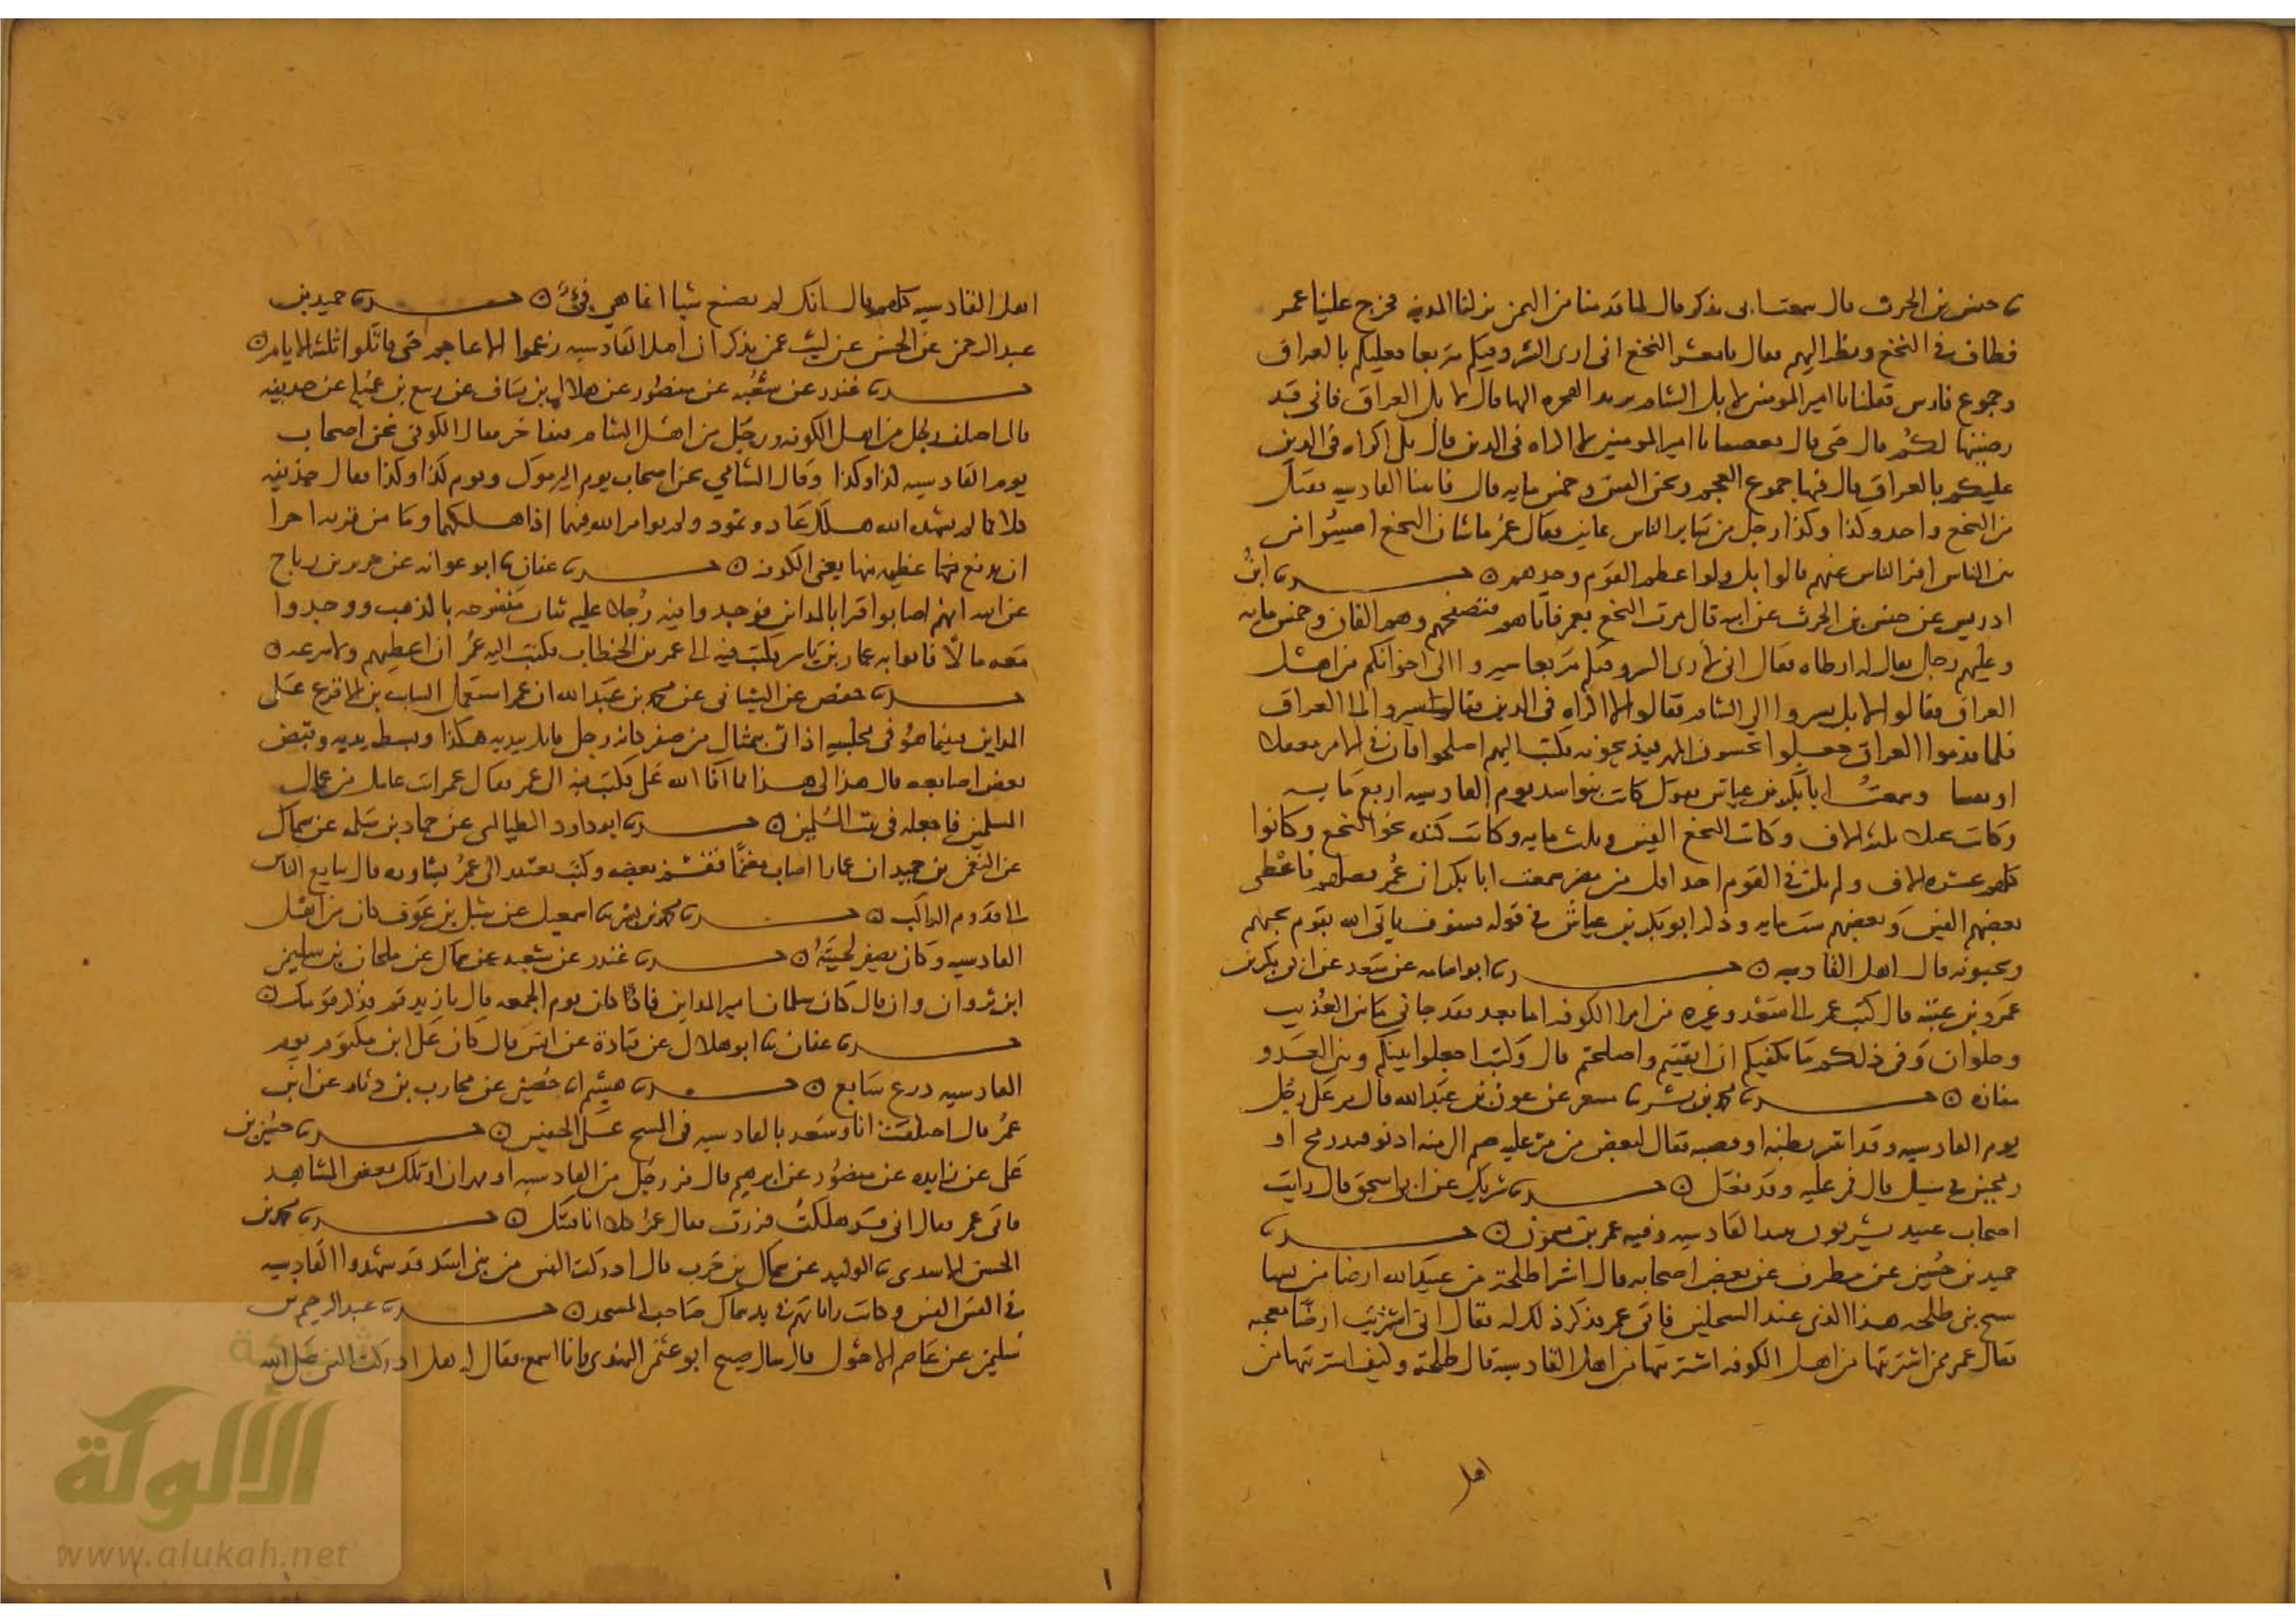 ثنا حنش بن الحرث قال سمعت ابى يذكر قال لما قدمنا من اليمن نزلنا المدينه فخرج علينا عمر
فطاف فى النخع ونظر اليهم فقال يا معشر النخع انى ارى السرو فيكم متربعا فعليكم بالعراق
وجموع فارس فقلنا يا امير المومنين لا بل الشام نريد الهجره اليها قال لا بل العراق فانى قد
رضيتها لكم قال حتى قال بعضنا يا امير المومنين لا اكراه فى الدين قال بل اكراه فى الدين
عليكم بالعراق قال فيها جموع العجم ونحن الفين وخمس مايه قال فاتينا القادسيه فقتل
من النخع واحد وكذا وكذا رجل من سائر الناس ثمانين فقال عمر ما شان النخع اصيبوا من
بين الناس افر الناس عنهم قالوا بل ولوا عظم القوم وحدهم ابن
ادريس عن حنش بن الحرث عن ابيه قال مرت النخع بعمر فاتاهم فتصفحهم وهم الفان وخمس مايه
وعليهم رجل يقال له ارطاه فقال انى لارى السرو فيكم متربعا سيروا الى اخوانكم من اهل
العراق فقالوا لا بل نسير الى الشام فقالوا لا اكراه فى الدين فقال سيروا الى العراق
فلما قدموا العراق جعلوا يحبسون المهر فيذبحونه فكتب اليهم اصلحوا فان فى الامر معقلا
او نفسا وسمعت ابا بكر بن عياش يقول كانت بنوا اسد يوم القادسيه اربع مايه
وكانت بجيله ثلثه الاف وكانت النخع الفين وثلث مايه وكانت كنده نحو النخع وكانوا
كلهم عشره الاف ولم يكن فى القوم احد اقل من مضر سمعت ابا بكر ان عمر فضلهم فاعطى
بعضهم الفين وبعضهم ست مايه وذكر ابو بكر بن عياش فى قوله فسوف ياتى الله بقوم يحبهم
ويحبونه قال اهل القادسيه ثنا ابو اسامه عن مسعر عن ابى بكر بن
عمرو بن عتبه قال كتب عمر الى سعد وغيره من امرا الكوفه اما بعد فقد جانى ما بين العذيب
وحلوان وفى ذلكم ما يكفيكم ان اتقيتم واصلحتم قال وكتب اجعلوا بينكم وبين العدو
مفازه ثنا محمد بن بشر ثنا مسعر عن عون بن عبد الله قال مر على رجل
يوم القادسيه وقد انتثر بطنه او قصبه فقال لبعض من مر عليه ضم الى منه ادنو قيد رمح او
رمحين فى سبيل الله قال فمر عليه وقد فعل ثنا شريك عن ابى اسحق قال رايت
اصحاب عبيد يشربون نبيذ القادسيه وفيه عمرو بن ميمون ثنا
حميد بن حسين عن مطرف عن بعض اصحابه قال اشترا طلحه بن عبيد الله ارضا من
نشاستج بن طلحه هذا الذى عند السيلحين فاتى عمر فذكر ذلك له فقال انى اشتريت ارضا معجبه
فقال عمر ممن اشتريتها من اهل الكوفه اشتريتها من اهل القادسيه قال طلحه وكيف اشتريتها من
اهل
اهل القادسيه كلهم قال انك لم تصنع شيا انما هى فئ ثنا حميد بن
عبد الرحمن عن الحسن عن ليث عمن يذكر ان اهل القادسيه رغموا الاعاجم حتى قاتلوا ثلثه الايام
ثنا غندر عن شعبه عن منصور عن هلال بن يساف عن ربيع بن عميله عن حذيفه
قال اختلف رجل من اهل الكوفه ورجل من اهل الشام فتفاخرا فقال الكوفى نحن اصحاب
يوم القادسيه كذا وكذا وقال الشامى نحن اصحاب يوم اليرموك ويوم كذا وكذا فقال حذيفه
كلاكما لم يشهد الله هلك عاد وثمود ولم يوامر الله فيهما اذا هلكهما وما من قريه احرا
ان تدفع عنها عظيمه منها يعنى الكوفه ثنا عفان ثنا ابو عوانه عن جرير بن رباح
عن ابيه انهم اصابوا قبرا بالمداين فوجدوا فيه رجلا عليه ثياب منسوجه بالذهب ووجدوا
معه مالا فاتوا به عمار بن ياسر فكتب فيه الى عمر بن الخطاب فكتب اليه عمر ان اعطهم ولا تنزعه
ثنا حفص عن الشيبانى عن محمد بن عبد الله ان عمر استعمل السايب بن الاقرع على
المداين فبينما هو فى مجلسه اذ اتى بتمثال من صفر كانه رجل قايل بيديه هكذا وبسط يديه وقبض
بعض اصابعه فقال هذا لى هذا مما افا الله على فكتب فيه الى عمر فقال عمر انت عامل من عمال
المسلمين فاجعله فى بيت المسلمين ثنا ابو داود الطيالسى عن حماد بن سلمه عن سماك
عن النعمن بن حميد ان عمارا اصاب مغنما فقسم بعضه وكتب يعتذر الى عمر يشاوره قال تبايع الناس
الى قدوم الراكب ثنا محمد بن بشر ثنا اسمعيل عن شبل بن عوف كان من اهل
القادسيه وكان يصفر لحيته ثنا غندر عن شعبه عن سماك عن ملحان بن سليمن
ابن ثروان قال كان سلمان امير المداين فاذا كان يوم الجمعه قال يا زيد قم فذكر قومك
ثنا عفان ثنا ابو هلال عن قتادة عن انس قال كان على ابن مكتوم يوم
القادسيه درع سابغ ثنا هشيم انا حصين عن محارب بن دثار عن ابن
عمر قال اختلفت انا وسعد بالقادسيه فى المسح على الخفين ثنا حسين بن
على عن زايده عن منصور عن ابرهيم قال فر رجل من القادسيه او مهران او تلك بعض المشاهد
فاتى عمر فقال انى قد هلكت فررت فقال عمر كلا انا فئتك ثنا محمد بن
الحسن الاسدى ثنا الوليد عن سماك بن حرب قال ادركت الفين من بنى اسد قد شهدوا القادسيه
فى الفين الفين وكانت راياتهم فى يد سماك صاحب المسجد ثنا عبد الرحيم بن
سليمن عن عاصم الاحول قال سال صبيح ابو عثمن النهدى وانا اسمع فقال له هل ادركت النبى صلى الله
شبكة
الألوكة
www.alukah.net